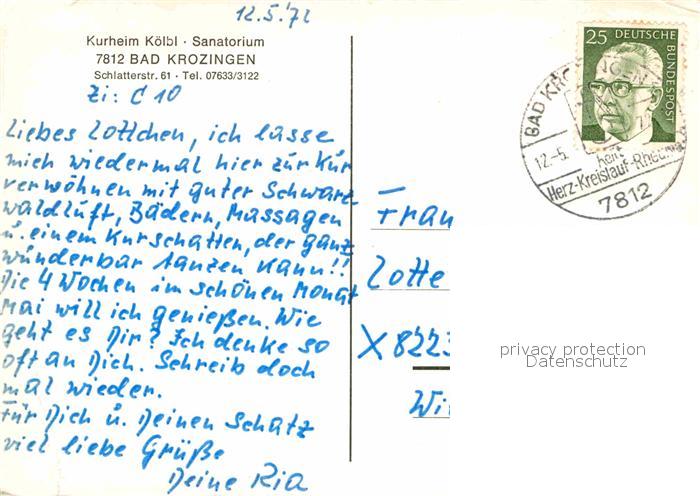 12.5.'72
Kurheim Kölbl · Sanatorium
7812 BAD KROZINGEN
Schlatterstr. 61 · Tel. 07633/3122
Zi: C 10
Liebes Lottchen, ich lasse
mich wiedermal hier zur Kur
verwöhnen mit guter Schwarz
waldluft, Bädern, Massagen
u. einem Kurschatten, der ganz
wunderbar tanzen kann!!
Die 4 Wochen im schönen Monat
Mai will ich genießen. Wie
geht es Dir? Ich denke so
oft an Dich. Schreib doch
mal wieder.
Für Dich u. Deinen Schatz
viel liebe Grüße
Deine Ria
25 DEUTSCHE
BUNDESPOST
BAD KRO
NGEN
12.-5.
heilt
Herz-Kreislauf-Rheuma
7812
Frau
Lotte
X8223
Wi
privacy protection
Datenschutz